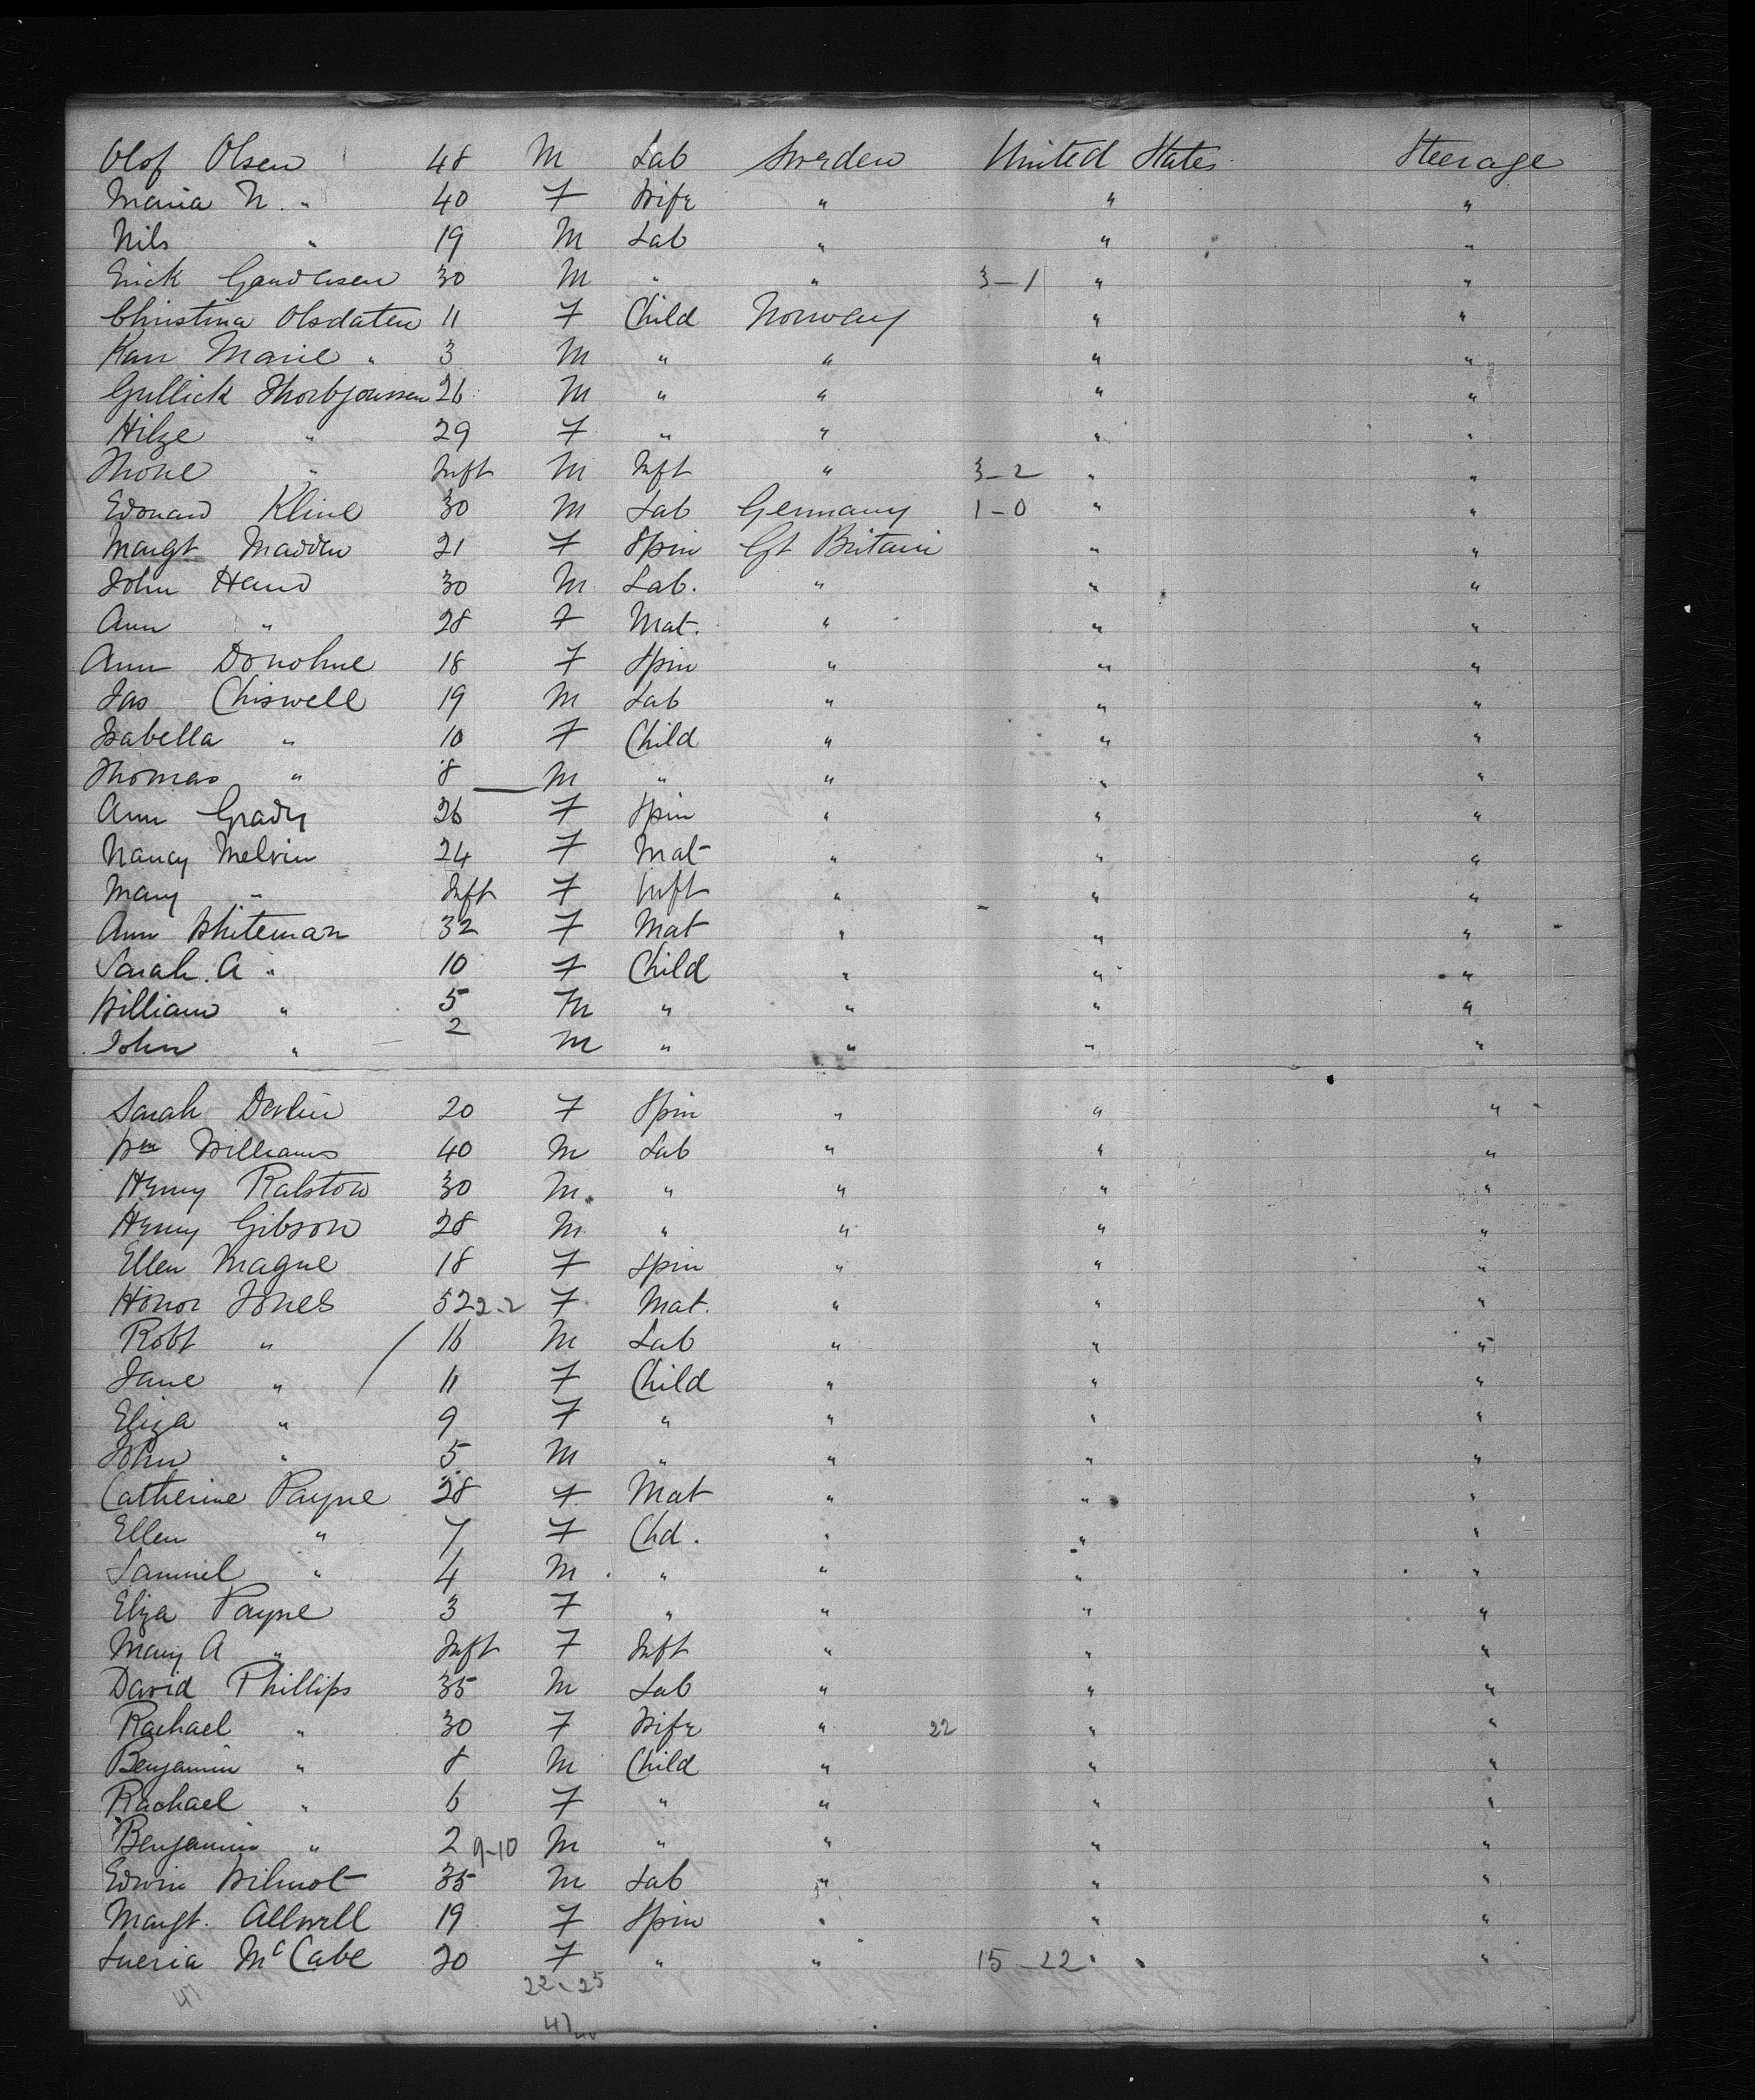 Olof Olsen 48 M Lab Sweden United States Steerage
Maria N. " 40 F Wife " " "
Nils " 19 M Lab " " "
Erick 30 M " " 3-1 " "
Christina Olsdaten 11 F Child Norway " "
Kari Marie " 3 M " " " "
Gullick Thorbjoussen 26 M " " " "
Hilge " 29 F " " " "
Thone " Inft M Inft " 3-2 " "
Edouard Kline 30 M Lab Germany 1-0 " "
Margt Madden 21 F Spin Gt Britain " "
John Hand 30 M Lab. " " "
Ann " 28 F Mat. " " "
Ann Donohue 18 F Spin " " "
Jas Chiswell 19 M Lab " " "
Isabella " 10 F Child " " "
Thomas " 8 M " " " "
Ann Grady 26 F Spin " " "
Nancy Melvin 24 F Mat " " "
Mary " Inft F Inft " " "
Ann Whiteman 32 F Mat " " "
Sarah A " 10 F Child " " "
William " 5 M " " " "
John " 2 M " " " "
Sarah Devlin 20 F Spin " " "
Wm Williams 40 M Lab " " "
Henry Ralston 30 M. " " " "
Henry Gibson 28 M " " " "
Ellen Mague 18 F Spin " " "
Honor Jones 52 2-2 F Mat. " " "
Robt " 16 M Lab " " "
Jane " 11 F Child " " "
Eliza " 9 F " " " "
John " 5 M " " " "
Catherine Payne 28 F Mat " " "
Ellen " 7 F Chd. " " "
Samuel " 4 M " " " "
Eliza Payne 3 F " " " "
Mary A " Inft F Inft " " "
David Phillips 35 M Lab " " "
Rachael " 30 F Wife " 22 " "
Benjamin " 8 M Child " " "
Rachael " 6 F " " " "
Benjamin " 2 9-10 M " " " "
Edwin Wilmot 35 M Lab " " "
Margt. Allwell 19 F Spin " " "
McCabe 20 F " " 15-22 " "
22-25
47
47